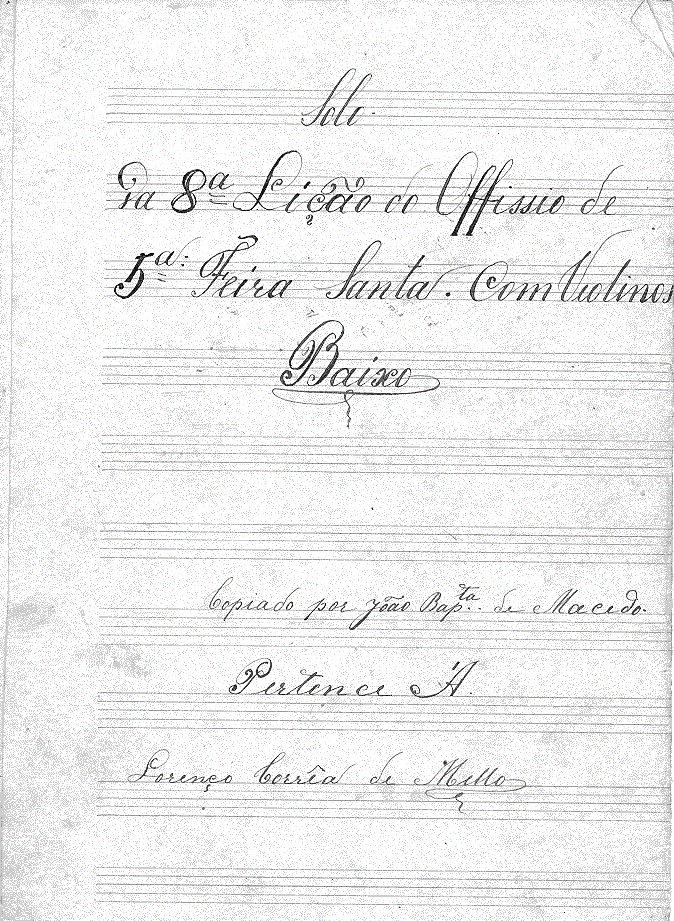 Solo.
Da 8ª Lição do Offissio de
5ª: Feira Santa. Com Violinos
Baixo
Copiado por João Bapta.. de Macedo.
Pertence Á.
Lorenço Corrêa de Mello